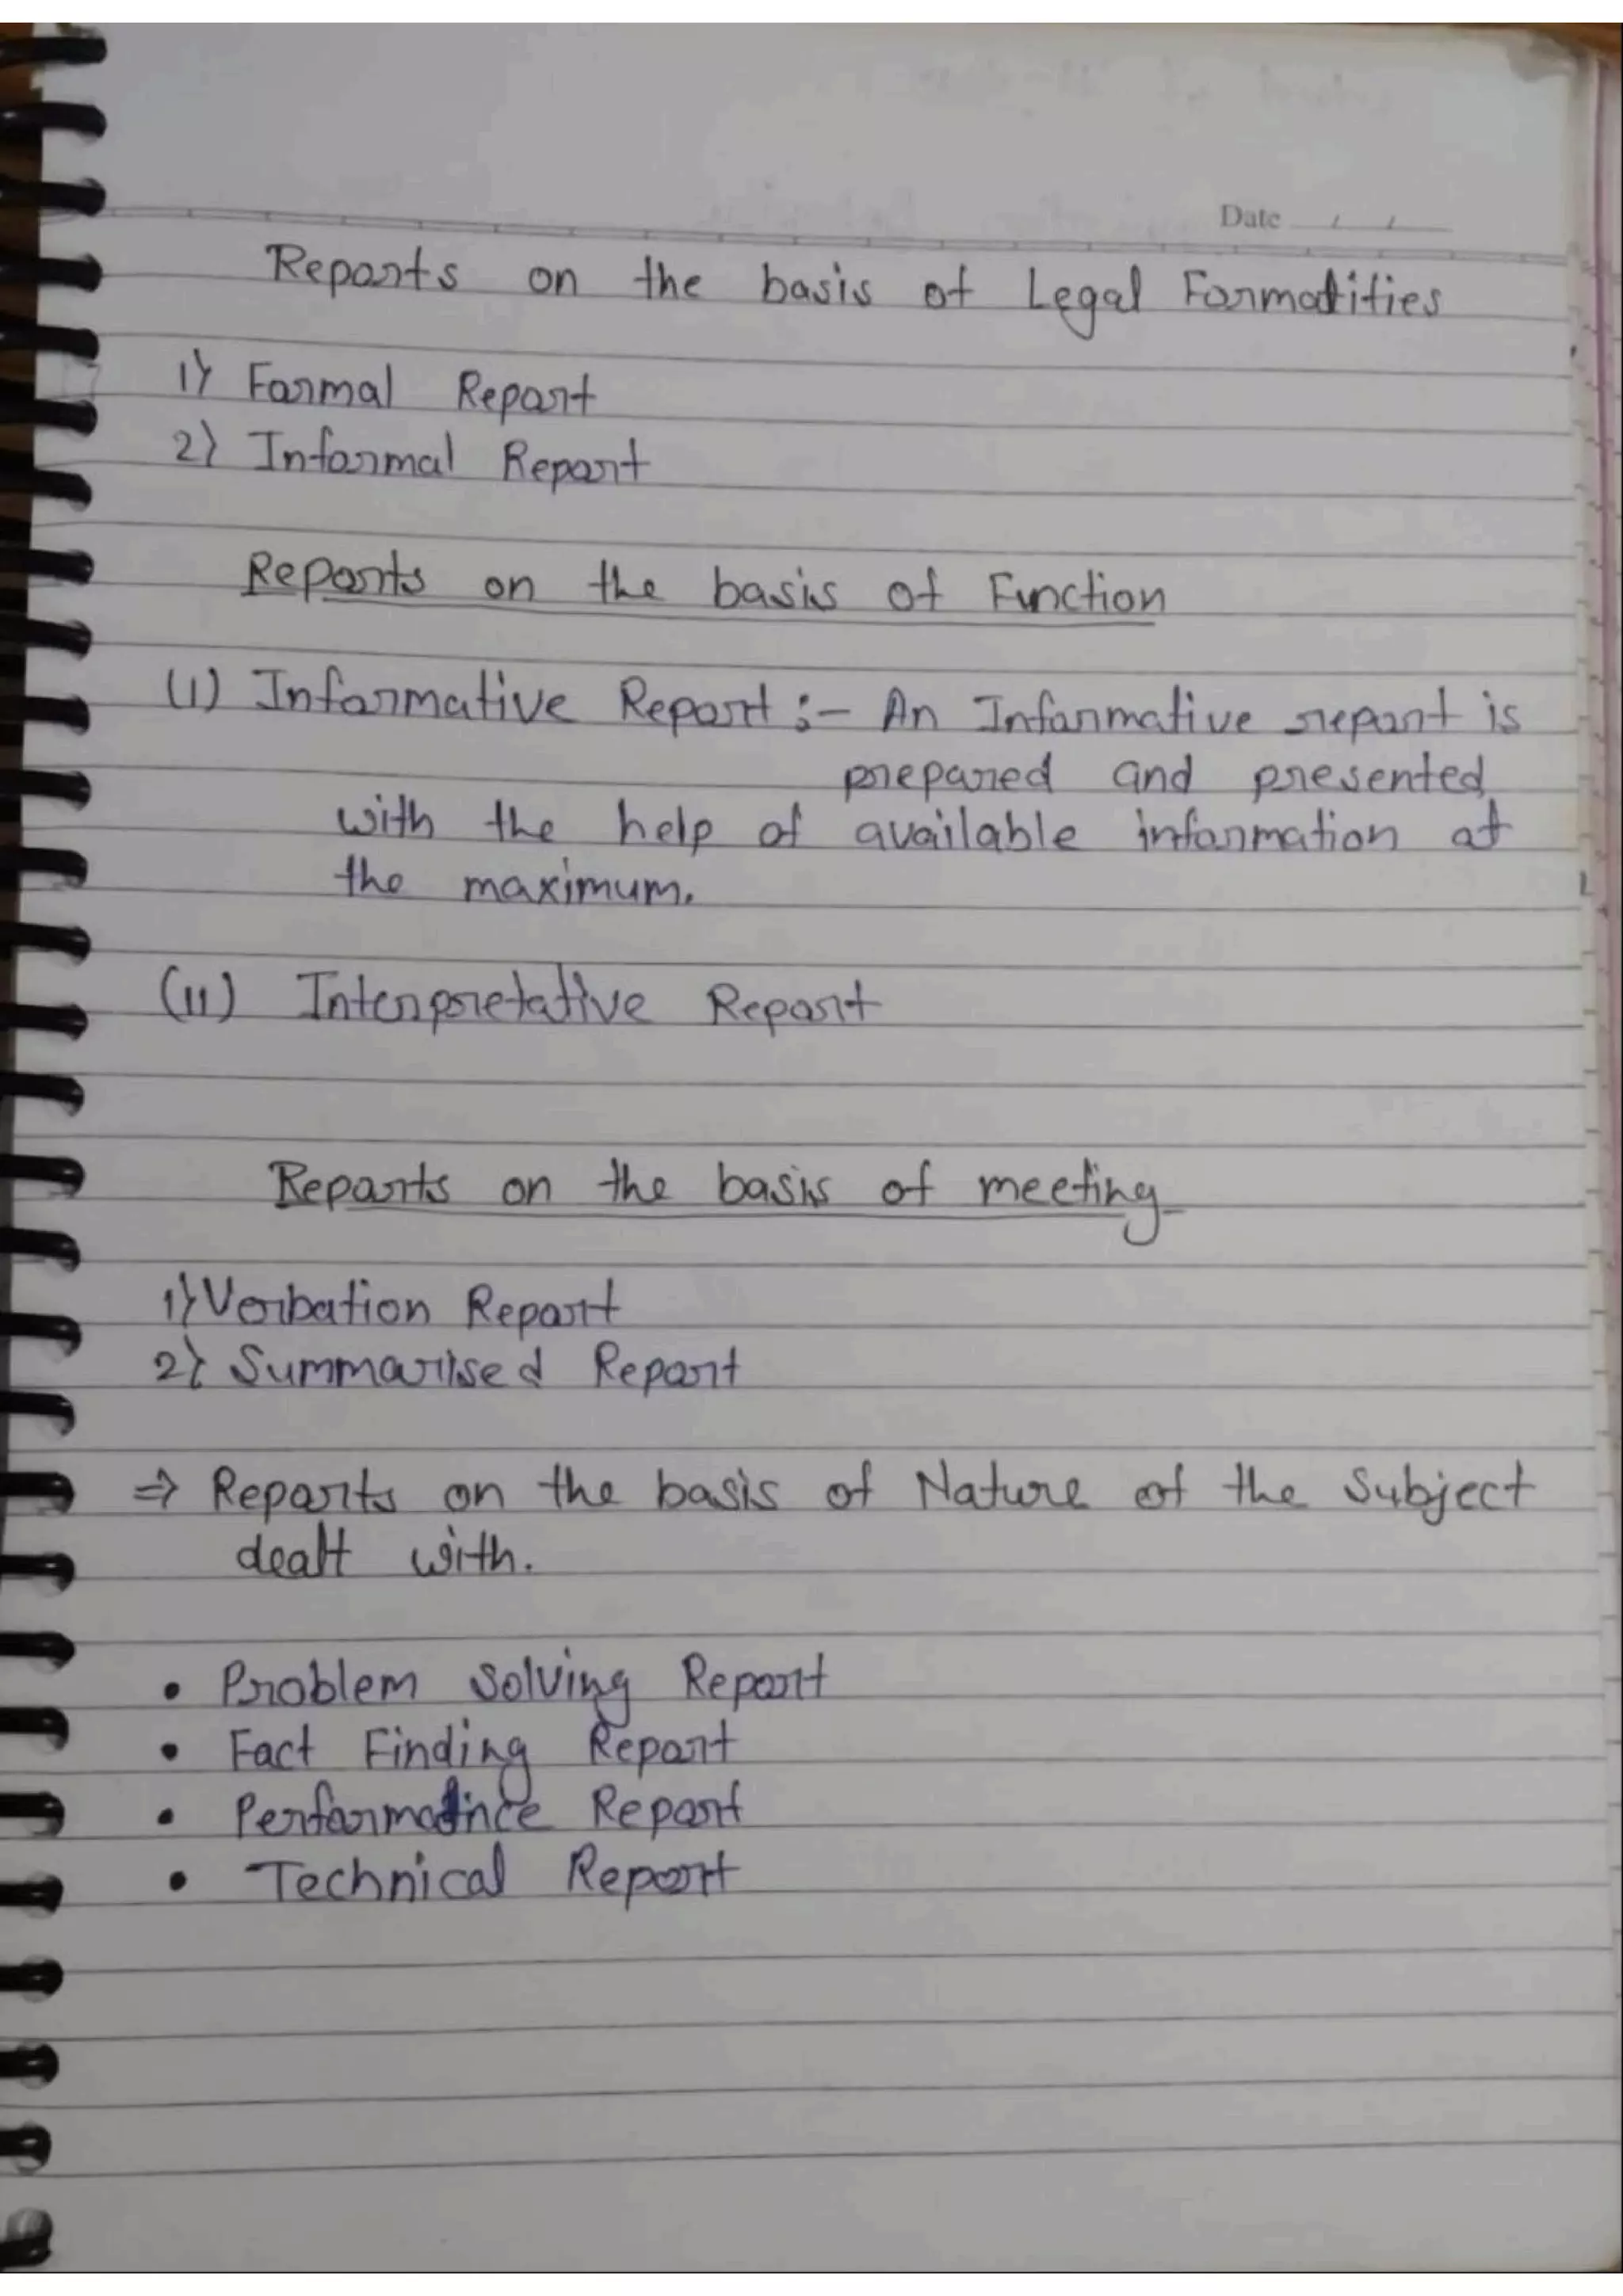 Date / /
Reports on the basis of Legal Formalities
1} Formal Report
2} Informal Report
Reports on the basis of Function
(1) Informative Report :- An Informative report is
prepared and presented
with the help of available information at
the maximum.
(11) Interpretative Report
Reports on the basis of meeting
1} Verbation Report
2} Summarised Report
⇒ Reports on the basis of Nature of the Subject
dealt with.
• Problem Solving Report
• Fact Finding Report
• Performance Report
• Technical Report